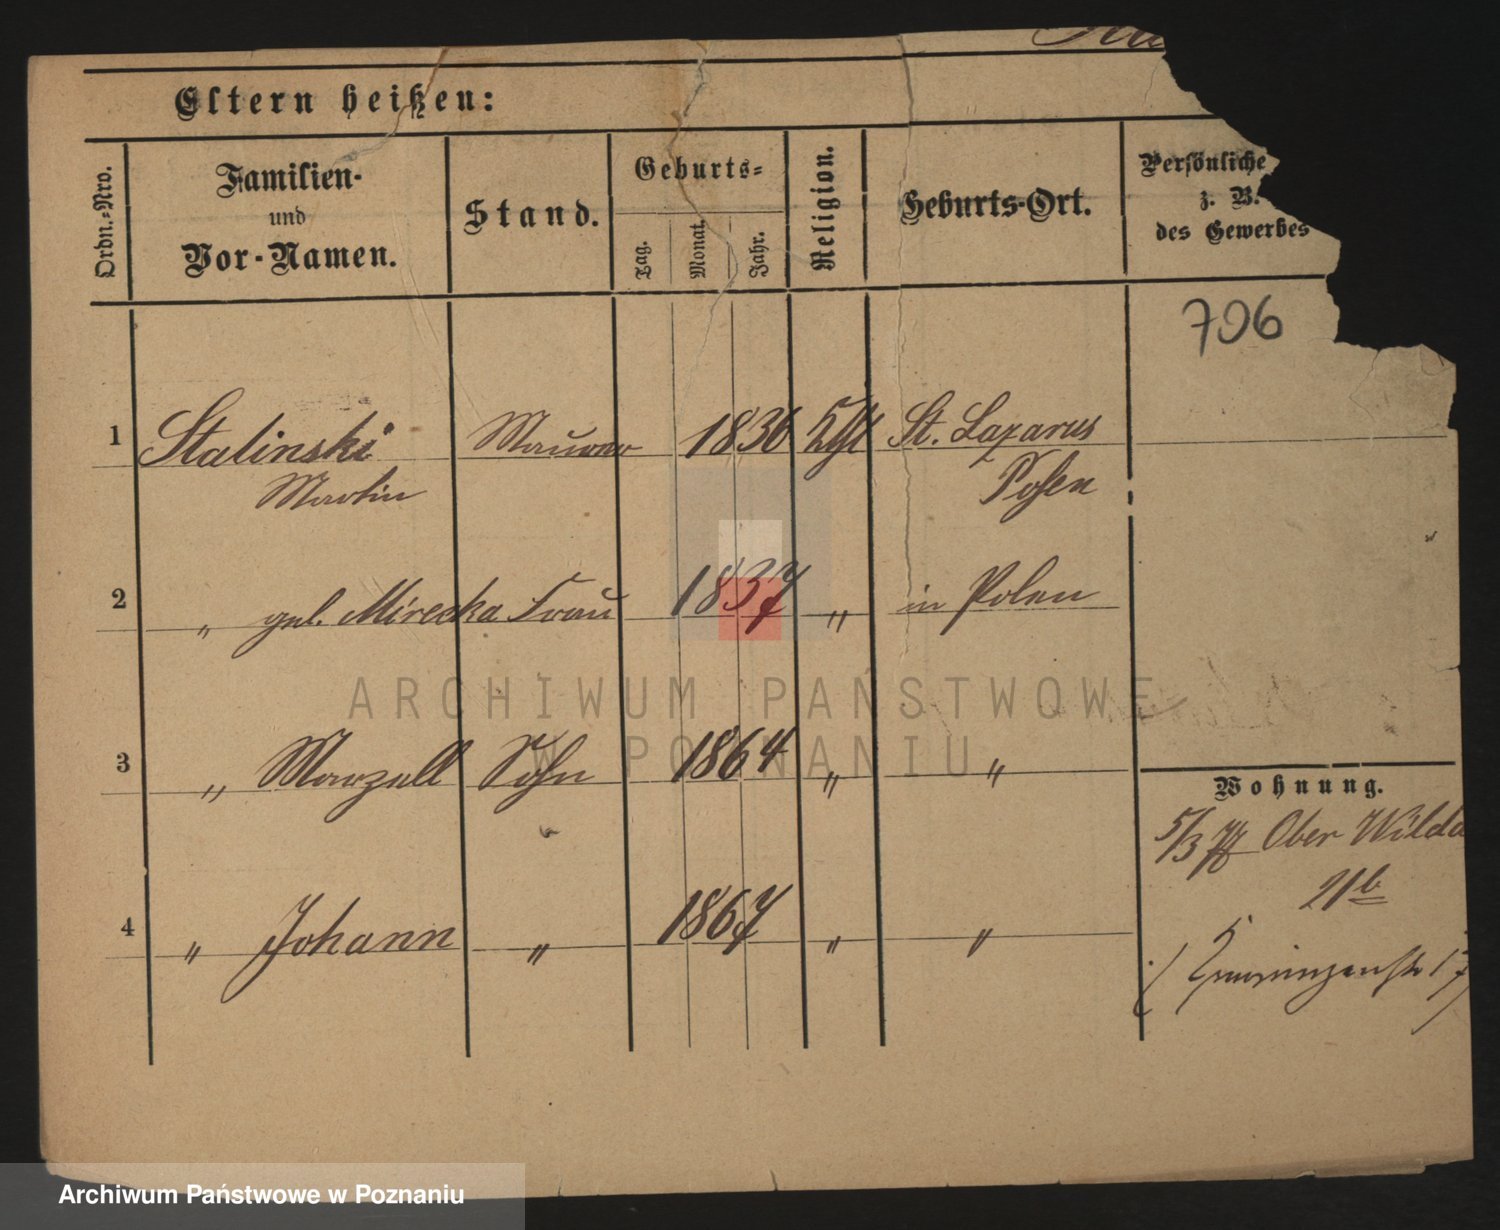 Eltern heißen:
Ordn.-Nro.
Familien-
und
Vor-Namen.
Stand.
Geburts-
Tag.
Monat.
Jahr.
Religion.
Geburts-Ort.
Persönliche
z. B.
des Gewerbes
706
1 Stalinski Maurer 1836 kth St. Lazarus
Martin Posen
2 " geb. Mirecka Frau 1837 " in Polen
3 " Marzell Sohn 1864 " "
4 " Johann " 1867 " "
Wohnung.
5/3 77 Ober Wilda
21b
17)
ARCHIWUM PAŃSTWOWE
W POZNANIU
Archiwum Państwowe w Poznaniu